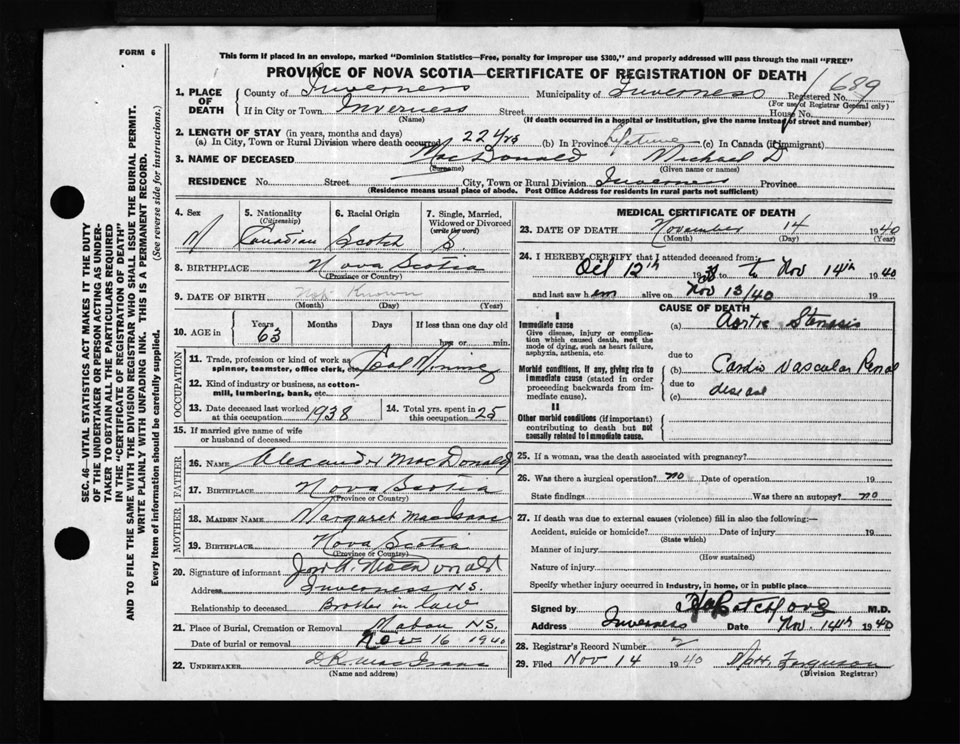 FORM 6
This form if placed in an envelope, marked "Dominion Statistics—Free, penalty for improper use $300," and properly addressed will pass through the mail "FREE"
PROVINCE OF NOVA SCOTIA—CERTIFICATE OF REGISTRATION OF DEATH
1. PLACE OF DEATH
County of Inverness Municipality of Inverness Registered No. 689
(For use of Registrar General only)
If in City or Town Inverness Street House No.
(Name) (If death occurred in a hospital or institution, give the name instead of street and number)
2. LENGTH OF STAY (in years, months and days)
(a) In City, Town or Rural Division where death occurred 22 yrs (b) In Province Lifetime (c) In Canada (if immigrant)
3. NAME OF DECEASED MacDonald Michael D
(Surname) (Given name or names)
RESIDENCE No. Street City, Town or Rural Division Inverness Province
(Residence means usual place of abode. Post Office Address for residents in rural parts not sufficient)
4. Sex M
5. Nationality (Citizenship) Canadian
6. Racial Origin Scotch
7. Single, Married, Widowed or Divorced (write the word) S.
8. BIRTHPLACE Nova Scotia
(Province or Country)
9. DATE OF BIRTH Not Known
(Month) (Day) (Year)
10. AGE in Years 63 Months Days If less than one day old
hrs or min.
OCCUPATION
11. Trade, profession or kind of work as spinner, teamster, office clerk, etc. Coal Mining
12. Kind of industry or business, as cotton-mill, lumbering, bank, etc.
13. Date deceased last worked at this occupation 1938
14. Total yrs. spent in this occupation 25
15. If married give name of wife or husband of deceased
FATHER
16. NAME Alexander MacDonald
17. BIRTHPLACE Nova Scotia
(Province or Country)
MOTHER
18. MAIDEN NAME Margaret MacIsaac
19. BIRTHPLACE Nova Scotia
(Province or Country)
20. Signature of informant MacDonald
Address Inverness N.S.
Relationship to deceased Brother in law
21. Place of Burial, Cremation or Removal Mabou N.S.
Date of burial or removal Nov 16 1940
22. UNDERTAKER D.R. MacIsaac
(Name and address)
MEDICAL CERTIFICATE OF DEATH
23. DATE OF DEATH November 14 1940
(Month) (Day) (Year)
24. I HEREBY CERTIFY that I attended deceased from:
12th 19 to Nov 14th 1940
and last saw him alive on Nov 13/40 19
CAUSE OF DEATH
I
Immediate cause
Give disease, injury or complication which caused death, not the mode of dying, such as heart failure, asphyxia, asthenia, etc
(a) Aortic Stenosis
due to
Morbid conditions, if any, giving rise to immediate cause (stated in order proceeding backwards from immediate cause).
(b) Cardio Vascular Renal
due to
(c) disease
II
Other morbid conditions (if important) contributing to death but not causally related to immediate cause.
25. If a woman, was the death associated with pregnancy?
26. Was there a surgical operation? no Date of operation 19
State findings Was there an autopsy? no
27. If death was due to external causes (violence) fill in also the following:—
Accident, suicide or homicide? Date of injury 19
(State which)
Manner of injury
(How sustained)
Nature of injury
Specify whether injury occurred in industry, in home, or in public place
Signed by M.D.
Address Inverness Date Nov. 14th 1940
28. Registrar's Record Number 2
29. Filed Nov 14 1940 Ferguson
(Division Registrar)
SEC. 46—VITAL STATISTICS ACT MAKES IT THE DUTY
OF THE UNDERTAKER OR PERSON ACTING AS UNDER-
TAKER TO OBTAIN ALL THE PARTICULARS REQUIRED
IN THE "CERTIFICATE OF REGISTRATION OF DEATH"
AND TO FILE THE SAME WITH THE DIVISION REGISTRAR WHO SHALL ISSUE THE BURIAL PERMIT.
WRITE PLAINLY WITH UNFADING INK. THIS IS A PERMANENT RECORD.
Every item of information should be carefully supplied. (See reverse side for instructions.)